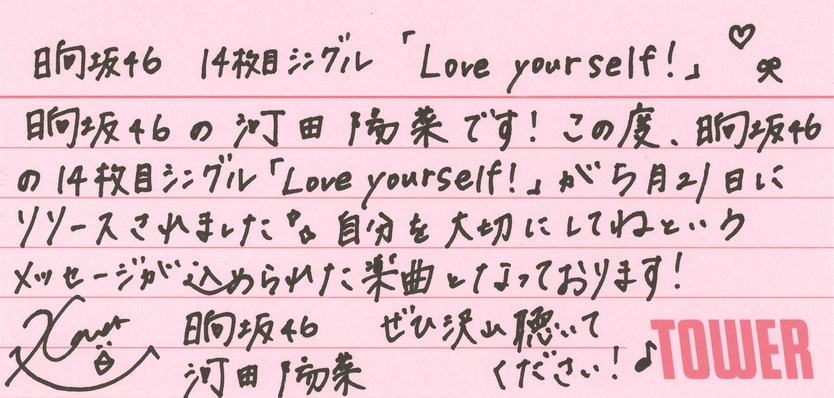 日向坂46 14枚目シングル「Love yourself!」♡
日向坂46の河田陽菜です!この度、日向坂46
の14枚目シングル「Love yourself!」が5月21日に
リリースされました 自分を大切にしてねという
メッセージが込められた楽曲となっております!
日向坂46 ぜひ沢山聴いて
河田陽菜 ください!♪
TOWER